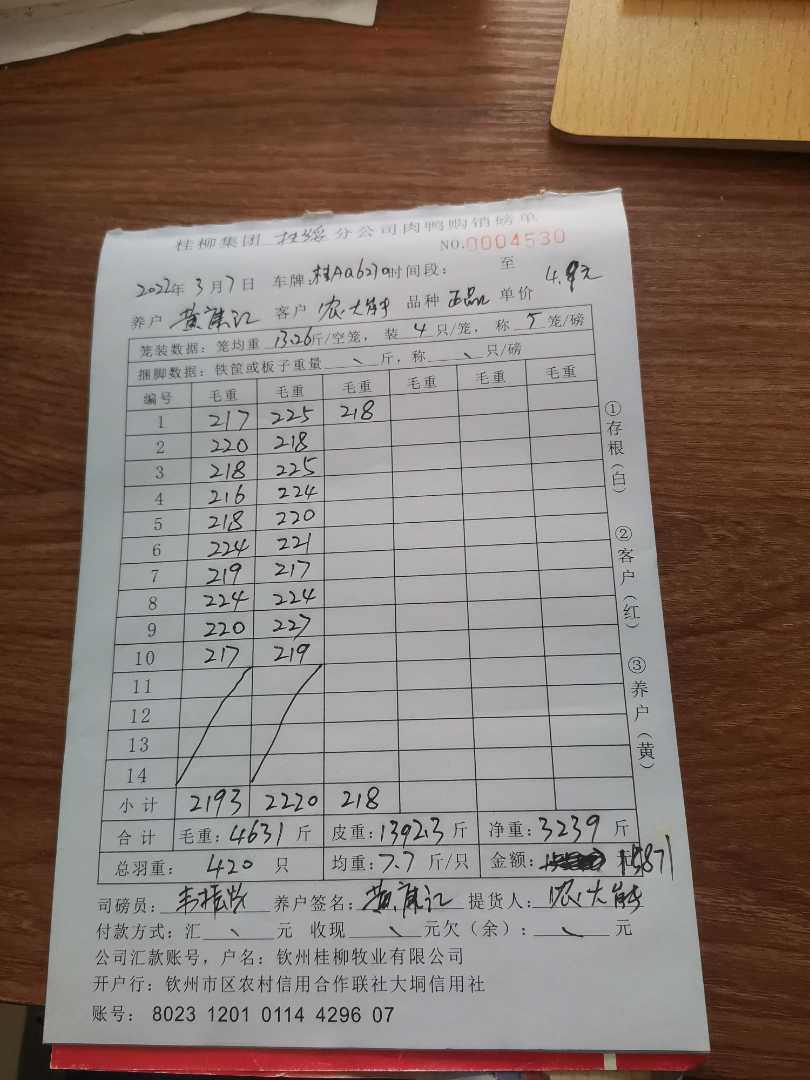 桂柳集团 分公司肉鸭购销磅单
NO.0004530
2022年 3月7日 车牌:桂AQ6270时间段: 至
养户 黄 江 客户 农大 品种 正品 单价 4.9元
笼装数据:笼均重 13.26斤/空笼, 装 4 只/笼, 称 5 笼/磅
捆脚数据:铁筐或板子重量 、 斤, 称 、 只/磅
编号 毛重 毛重 毛重 毛重 毛重 毛重
1 217 225 218
2 220 218
3 218 225
4 216 224
5 218 220
6 224 221
7 219 217
8 224 224
9 220 227
10 217 219
11
12
13
14
小计 2193 2220 218
合计 毛重:4631 斤 皮重:1392.3 斤 净重:3239 斤
总羽重: 420 只 均重:7.7 斤/只 金额: 元 15871
司磅员:韦 养户签名:黄 江 提货人:农大
付款方式:汇 、 元 收现 、 元欠(余): 、 元
公司汇款账号,户名:钦州桂柳牧业有限公司
开户行:钦州市区农村信用合作联社大垌信用社
账号: 8023 1201 0114 4296 07
①存根(白)
②客户(红)
③养户(黄)